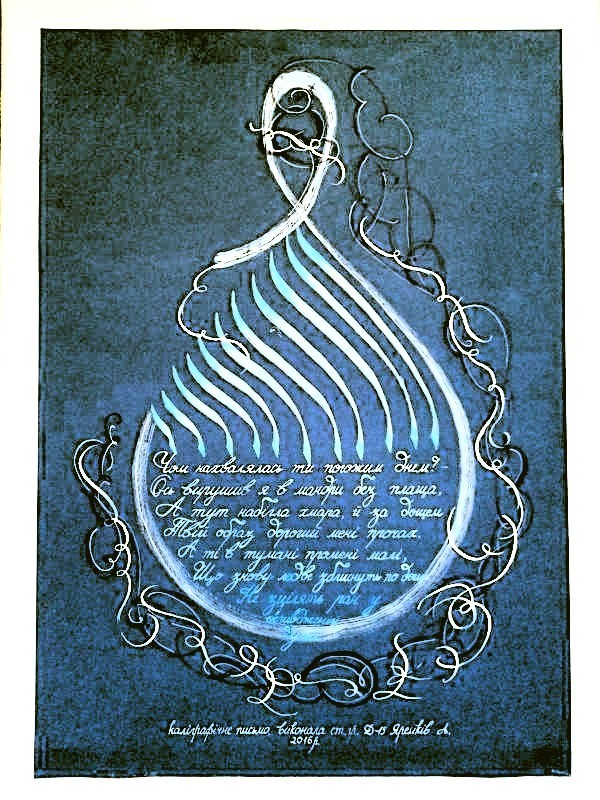 Чом нахвалялась ти погожим днем? -
Ось вирушив я в мандри без плаща,
А тут набігла хмара й за дощем
Твій образ дорогий мені прочах.
А ті в тумані промені малі,
Що знову ледве зблиснуть по дощ
Не зцілять ран у
каліграфічне письмо виконала ст. гр. Д-13 Яремків А.
2016р.